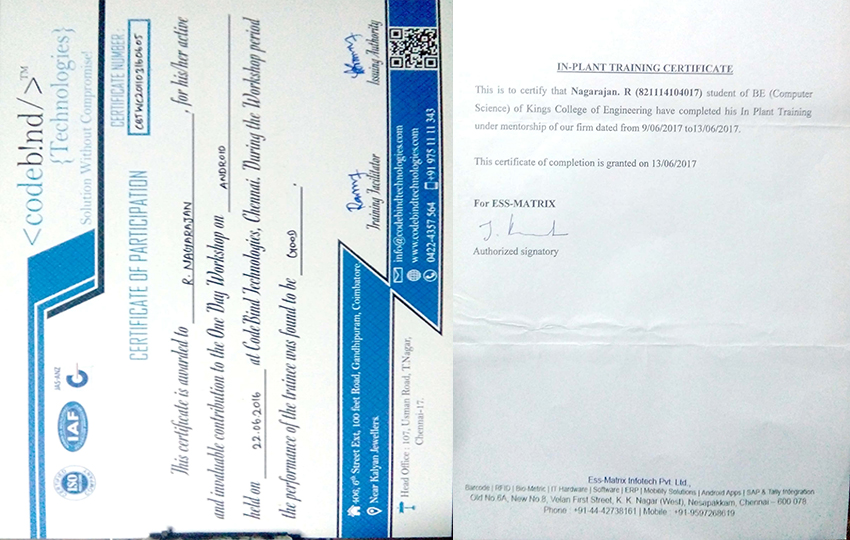 <codeb!nd/>™
{Technologies}
Solution Without Compromise!
ISO
IAF
JAS-ANZ
CERTIFICATE NUMBER:
CERTIFICATE OF PARTICIPATION
This certificate is awarded to R. NAGARAJAN, for his/her active
and invaluable contribution to the One Day Workshop on ANDROID
held on 22.06.2016 at CodeBind Technologies, Chennai. During the Workshop period
the performance of the trainee was found to be GOOD.
Training Facilitator
Issuing Authority
906, 6th Street Ext, 100 feet Road, Gandhipuram, Coimbatore
Near Kalyan Jewellers.
Head Office : 107, Usman Road, T.Nagar,
Chennai-17.
info@codebindtechnologies.com
www.codebindtechnologies.com
0422-4357 564 +91 975 11 11 343
IN-PLANT TRAINING CERTIFICATE
This is to certify that Nagarajan. R (821114104017) student of BE (Computer
Science) of Kings College of Engineering have completed his In Plant Training
under mentorship of our firm dated from 9/06/2017 to13/06/2017.
This certificate of completion is granted on 13/06/2017
For ESS-MATRIX
Authorized signatory
Ess-Matrix Infotech Pvt. Ltd.,
Barcode | RFID | Bio Metric | IT Hardware | Software | ERP | Mobility Solutions | Android Apps | SAP & Tally Integration
Old No.6A, New No.8, Velan First Street, K. K. Nagar (West), Nesapakkam, Chennai – 600 078
Phone : +91-44-42738161 | Mobile : +91-9597268619